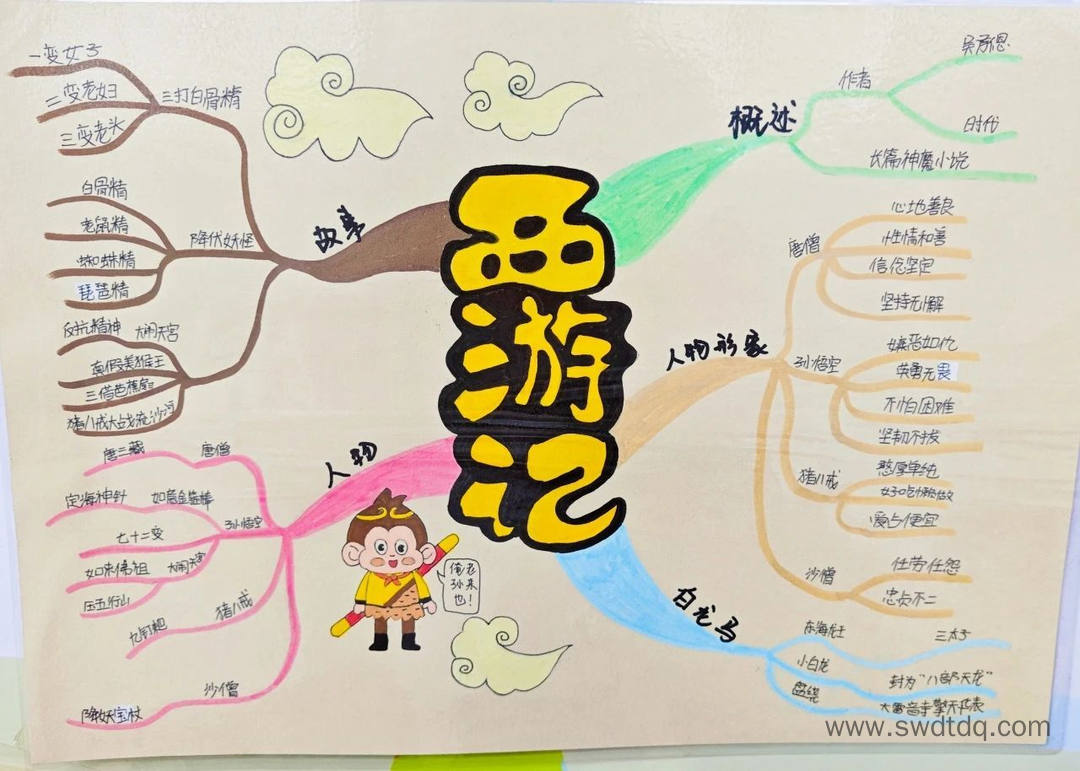 西游记
概述
作者
吴承恩
时代
长篇神魔小说
人物形象
唐僧
心地善良
性情和善
信念坚定
坚持无懈
孙悟空
嫉恶如仇
英勇无畏
不怕困难
坚韧不拔
猪八戒
憨厚单纯
好吃懒做
爱占便宜
沙僧
任劳任怨
忠贞不二
白龙马
东海龙王
三太子
小白龙
封为“八部天龙”
盘绕
大雷音寺擎天华表
故事
三打白骨精
一变女子
二变老妇
三变老头
降伏妖怪
白骨精
老鼠精
蜘蛛精
琵琶精
反抗精神
大闹天宫
真假美猴王
三借芭蕉扇
猪八戒大战流沙河
人物
唐三藏
唐僧
定海神针
如意金箍棒
孙悟空
七十二变
如来佛祖
大闹天宫
压五行山
九钉耙
猪八戒
沙僧
降妖宝杖
俺老孙来也！
www.swdtdq.com